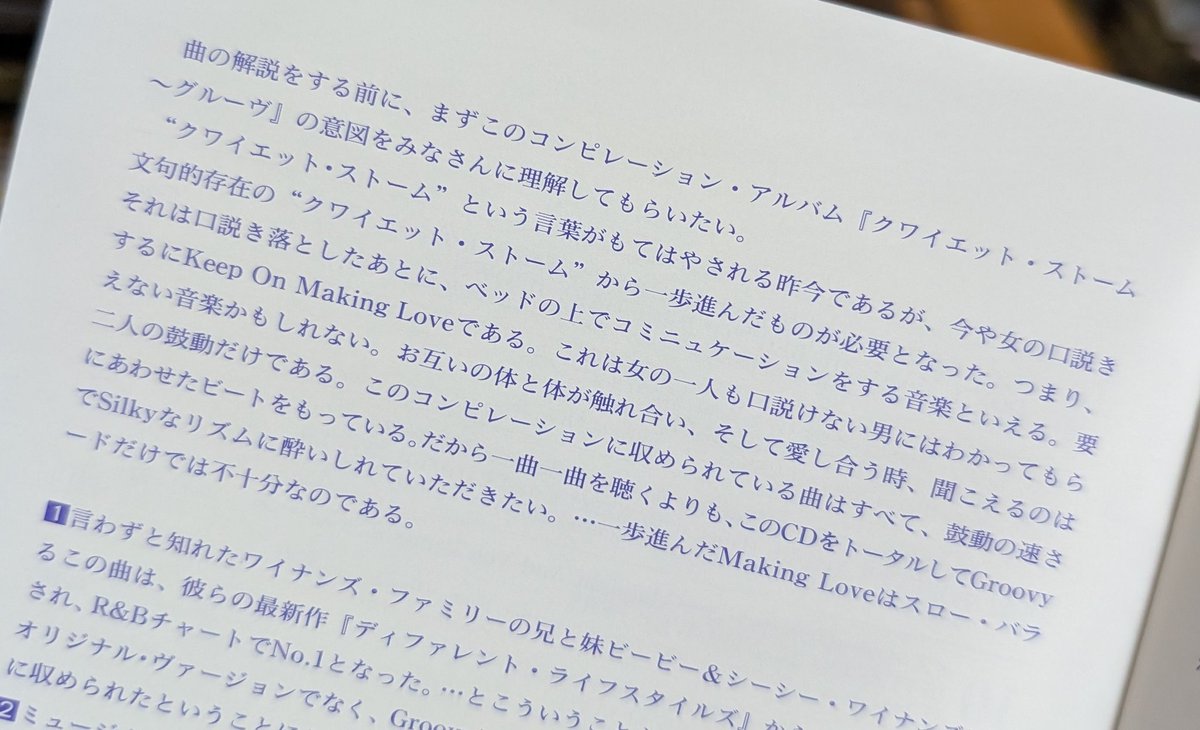 曲の解説をする前に、まずこのコンピレーション・アルバム『クワイエット・ストーム
〜グルーヴ』の意図をみなさんに理解してもらいたい。
“クワイエット・ストーム”という言葉がもてはやされる昨今であるが、今や女の口説き
文句的存在の“クワイエット・ストーム”から一歩進んだものが必要となった。つまり、
それは口説き落としたあとに、ベッドの上でコミニュケーションをする音楽といえる。要
するにKeep On Making Loveである。これは女の一人も口説けない男にはわかってもら
えない音楽かもしれない。お互いの体と体が触れ合い、そして愛し合う時、聞こえるのは
二人の鼓動だけである。このコンピレーションに収められている曲はすべて、鼓動の速さ
にあわせたビートをもっている。だから一曲一曲を聴くよりも、このCDをトータルしてGroovy
でSilkyなリズムに酔いしれていただきたい。…一歩進んだMaking Loveはスロー・バラ
ードだけでは不十分なのである。
1言わずと知れたワイナンズ・ファミリーの兄と妹ビービー&シーシー・ワイナンズ
るこの曲は、彼らの最新作『ディファレント・ライフスタイルズ』か
され、R&BチャートでNo.1となった。…とこういうこと
オリジナル・ヴァージョンでなく、Groo
に収められたということに
2ミュージ